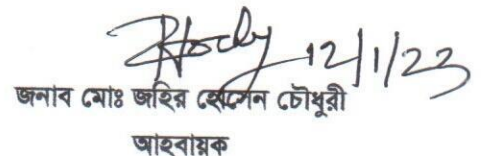 12/1/23
জনাব মোঃ জহির হোসেন চৌধুরী
আহবায়ক